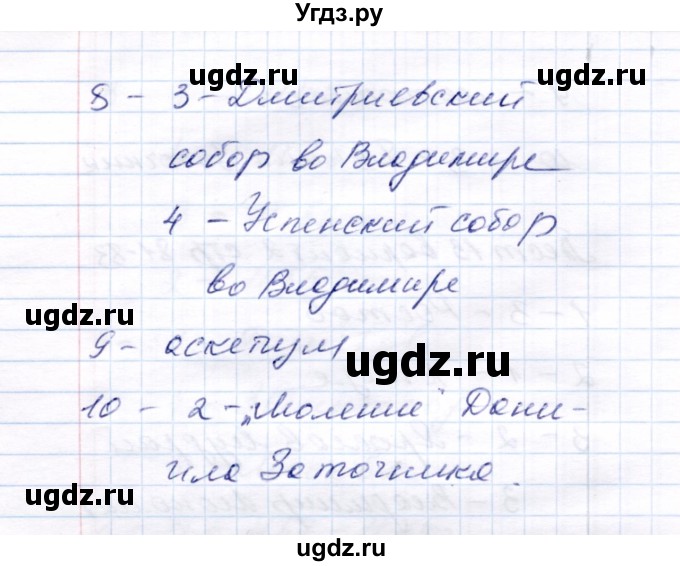 Угдз.ру
ugdz.ru ugdz.ru
8 - 3 - Дмитриевский
собор во Владимире
4 - Успенский собор
во Владимире
ugdz.ru
9 - аскетизм
ugdz.ru
10 - 2 - „Моление" Дани-
ила Заточника
ugdz.ru ugdz.ru
ugdz.ru